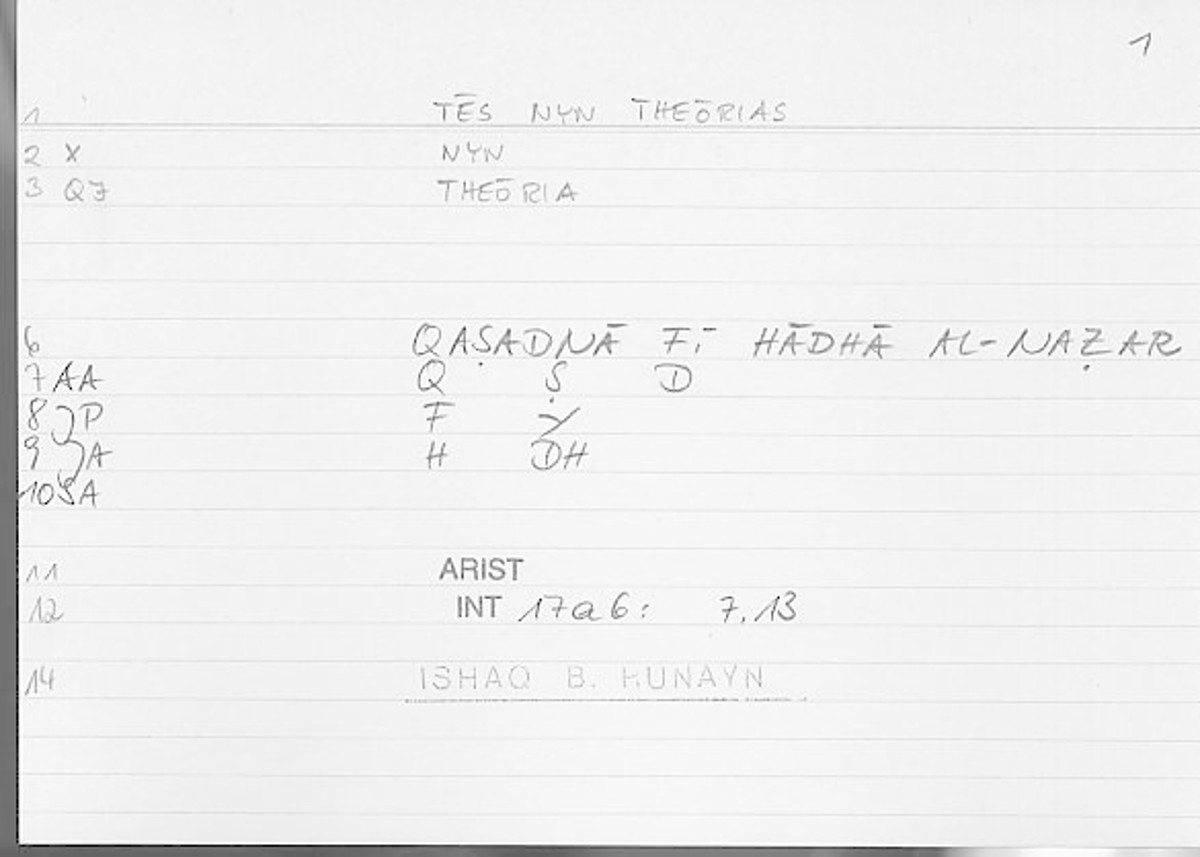 1
1 TĒS NYN THEŌRIAS
2 X NYN
3 QF THEŌRIA
6 QAṢADNĀ FĪ HĀDHĀ AL-NAẒAR
7 AA Q Ṣ D
8 JP F Y
9 JA H DH
10 SA
11 ARIST
12 INT 17a6: 7,13
14 ISHAQ B. HUNAYN